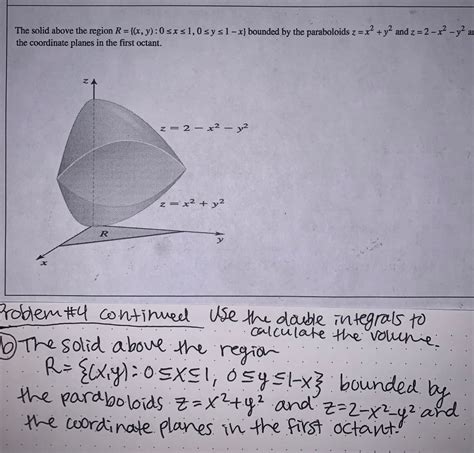 The solid above the region R = {(x, y) : 0 ≤ x ≤ 1, 0 ≤ y ≤ 1 − x} bounded by the paraboloids z = x² + y² and z = 2 − x² − y² a
the coordinate planes in the first octant.
z
z = 2 − x² − y²
z = x² + y²
R
y
x
Problem #4 continued Use the double integrals to
calculate the volume.
b) The solid above the region
R= {(x,y): 0≤x≤1, 0≤y≤1-x} bounded by
the paraboloids z=x²+y² and z=2-x²-y² and
the coordinate planes in the first octant.